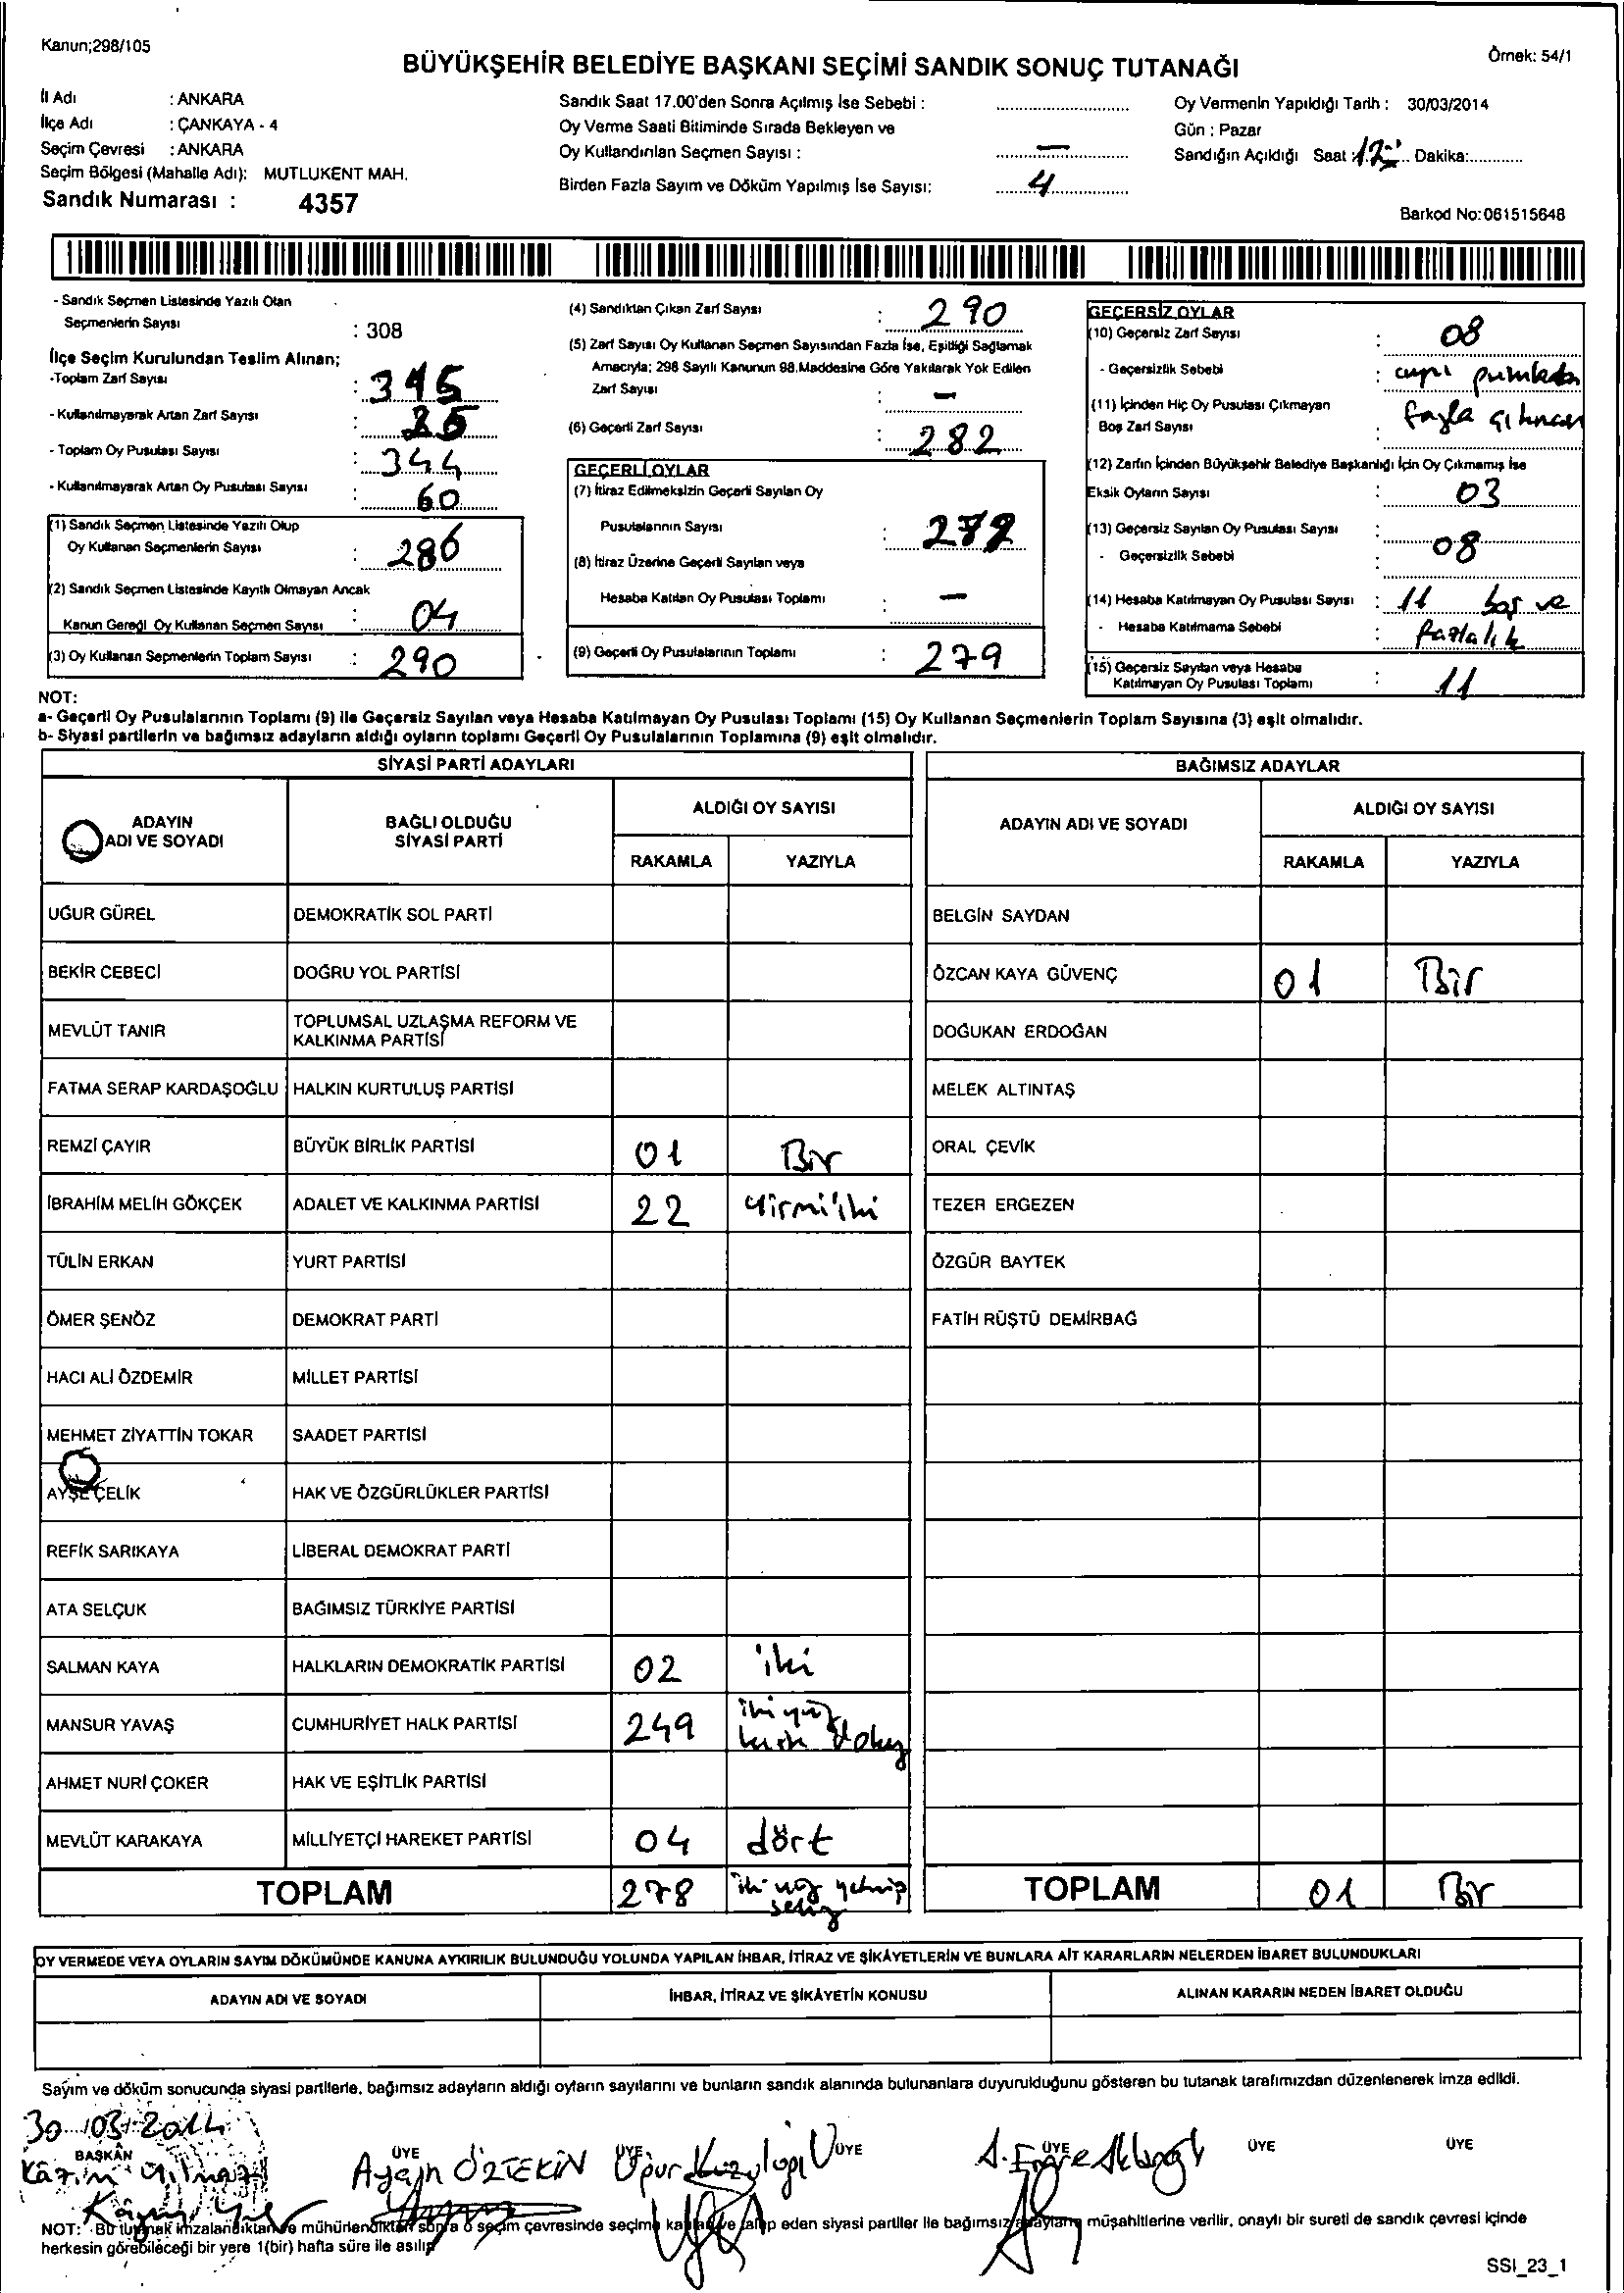 Kanun;298/105
Örnek: 54/1
BÜYÜKŞEHİR BELEDİYE BAŞKANI SEÇİMİ SANDIK SONUÇ TUTANAĞI
İl Adı : ANKARA
İlçe Adı : ÇANKAYA - 4
Seçim Çevresi : ANKARA
Seçim Bölgesi (Mahalle Adı): MUTLUKENT MAH.
Sandık Numarası : 4357
Sandık Saat 17.00'den Sonra Açılmış İse Sebebi :
Oy Verme Saati Bitiminde Sırada Bekleyen ve
Oy Kullandırılan Seçmen Sayısı : —
Birden Fazla Sayım ve Döküm Yapılmış İse Sayısı: 4
Oy Vermenin Yapıldığı Tarih : 30/03/2014
Gün : Pazar
Sandığın Açıldığı Saat : Dakika:
Barkod No:061515648
- Sandık Seçmen Listesinde Yazılı Olan
Seçmenlerin Sayısı : 308
İlçe Seçim Kurulundan Teslim Alınan;
-Toplam Zarf Sayısı :
- Kullanılmayarak Artan Zarf Sayısı :
- Toplam Oy Pusulası Sayısı : 344
- Kullanılmayarak Artan Oy Pusulası Sayısı : 60
(1) Sandık Seçmen Listesinde Yazılı Olup
Oy Kullanan Seçmenlerin Sayısı : 286
(2) Sandık Seçmen Listesinde Kayıtlı Olmayan Ancak
Kanun Gereği Oy Kullanan Seçmen Sayısı : 04
(3) Oy Kullanan Seçmenlerin Toplam Sayısı : 290
(4) Sandıktan Çıkan Zarf Sayısı : 290
(5) Zarf Sayısı Oy Kullanan Seçmen Sayısından Fazla İse, Eşitliği Sağlamak
Amacıyla; 298 Sayılı Kanunun 98.Maddesine Göre Yakılarak Yok Edilen
Zarf Sayısı : —
(6) Geçerli Zarf Sayısı : 282
GEÇERLİ OYLAR
(7) İtiraz Edilmeksizin Geçerli Sayılan Oy
Pusulalarının Sayısı : 279
(8) İtiraz Üzerine Geçerli Sayılan veya
Hesaba Katılan Oy Pusulası Toplamı : —
(9) Geçerli Oy Pusulalarının Toplamı : 279
GEÇERSİZ OYLAR
(10) Geçersiz Zarf Sayısı : 08
- Geçersizlik Sebebi :
(11) İçinden Hiç Oy Pusulası Çıkmayan
Boş Zarf Sayısı :
(12) Zarfın İçinden Büyükşehir Belediye Başkanlığı İçin Oy Çıkmamış İse
Eksik Oyların Sayısı : 03
(13) Geçersiz Sayılan Oy Pusulası Sayısı : 08
- Geçersizlik Sebebi
(14) Hesaba Katılmayan Oy Pusulası Sayısı : 11 boş ve
- Hesaba Katılmama Sebebi : fazlalık
(15) Geçersiz Sayılan veya Hesaba
Katılmayan Oy Pusulası Toplamı : 11
NOT:
a- Geçerli Oy Pusulalarının Toplamı (9) ile Geçersiz Sayılan veya Hesaba Katılmayan Oy Pusulası Toplamı (15) Oy Kullanan Seçmenlerin Toplam Sayısına (3) eşit olmalıdır.
b- Siyasi partilerin ve bağımsız adayların aldığı oyların toplamı Geçerli Oy Pusulalarının Toplamına (9) eşit olmalıdır.
SİYASİ PARTİ ADAYLARI
ADAYIN
ADI VE SOYADI
BAĞLI OLDUĞU
SİYASİ PARTİ
ALDIĞI OY SAYISI
RAKAMLA YAZIYLA
UĞUR GÜREL DEMOKRATİK SOL PARTİ
BEKİR CEBECİ DOĞRU YOL PARTİSİ
MEVLÜT TANIR TOPLUMSAL UZLAŞMA REFORM VE
KALKINMA PARTİSİ
FATMA SERAP KARDAŞOĞLU HALKIN KURTULUŞ PARTİSİ
REMZİ ÇAYIR BÜYÜK BİRLİK PARTİSİ 01 Bir
İBRAHİM MELİH GÖKÇEK ADALET VE KALKINMA PARTİSİ 22 Yirmi iki
TÜLİN ERKAN YURT PARTİSİ
ÖMER ŞENÖZ DEMOKRAT PARTİ
HACI ALİ ÖZDEMİR MİLLET PARTİSİ
MEHMET ZİYATTİN TOKAR SAADET PARTİSİ
AYŞE ÇELİK HAK VE ÖZGÜRLÜKLER PARTİSİ
REFİK SARIKAYA LİBERAL DEMOKRAT PARTİ
ATA SELÇUK BAĞIMSIZ TÜRKİYE PARTİSİ
SALMAN KAYA HALKLARIN DEMOKRATİK PARTİSİ 02 iki
MANSUR YAVAŞ CUMHURİYET HALK PARTİSİ 249 iki yüz
kırk dokuz
AHMET NURİ ÇOKER HAK VE EŞİTLİK PARTİSİ
MEVLÜT KARAKAYA MİLLİYETÇİ HAREKET PARTİSİ 04 dört
TOPLAM 278 iki yüz yetmiş
sekiz
BAĞIMSIZ ADAYLAR
ADAYIN ADI VE SOYADI
ALDIĞI OY SAYISI
RAKAMLA YAZIYLA
BELGİN SAYDAN
ÖZCAN KAYA GÜVENÇ 01 Bir
DOĞUKAN ERDOĞAN
MELEK ALTINTAŞ
ORAL ÇEVİK
TEZER ERGEZEN
ÖZGÜR BAYTEK
FATİH RÜŞTÜ DEMİRBAĞ
TOPLAM 01 Bir
OY VERMEDE VEYA OYLARIN SAYIM DÖKÜMÜNDE KANUNA AYKIRILIK BULUNDUĞU YOLUNDA YAPILAN İHBAR, İTİRAZ VE ŞİKÂYETLERİN VE BUNLARA AİT KARARLARIN NELERDEN İBARET BULUNDUKLARI
ADAYIN ADI VE SOYADI İHBAR, İTİRAZ VE ŞİKÂYETİN KONUSU ALINAN KARARIN NEDEN İBARET OLDUĞU
Sayım ve döküm sonucunda siyasi partilerle, bağımsız adayların aldığı oyların sayılarını ve bunların sandık alanında bulunanlara duyurulduğunu gösteren bu tutanak tarafımızdan düzenlenerek imza edildi.
30/03/2014
BAŞKAN ÜYE ÜYE ÜYE ÜYE ÜYE ÜYE
Kazım Yılmaz ÖZTEKİN
NOT: Bu tutanak imzalandıktan ve mühürlendikten sonra o seçim çevresinde seçime katılan ve talep eden siyasi partiler ile bağımsız adayların müşahitlerine verilir, onaylı bir sureti de sandık çevresi içinde
herkesin görebileceği bir yere 1(bir) hafta süre ile asılır
SSI_23_1